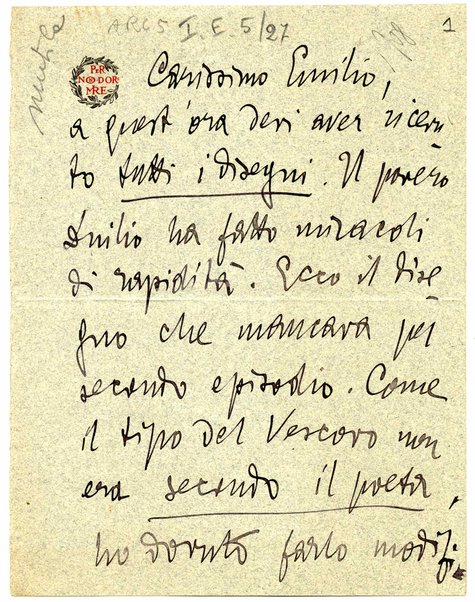 mutila
ARC5 I.E.5/27
1
PER
NON DOR
MIRE
Carissimo Emilio,
a quest'ora devi aver ricevu
to tutti i disegni. Il povero
Duilio ha fatto miracoli
di rapidità. Ecco il dise
gno che mancava pel
secondo episodio. Come
il tipo del Vescovo non
era secondo il poeta,
ho dovuto farlo modifi